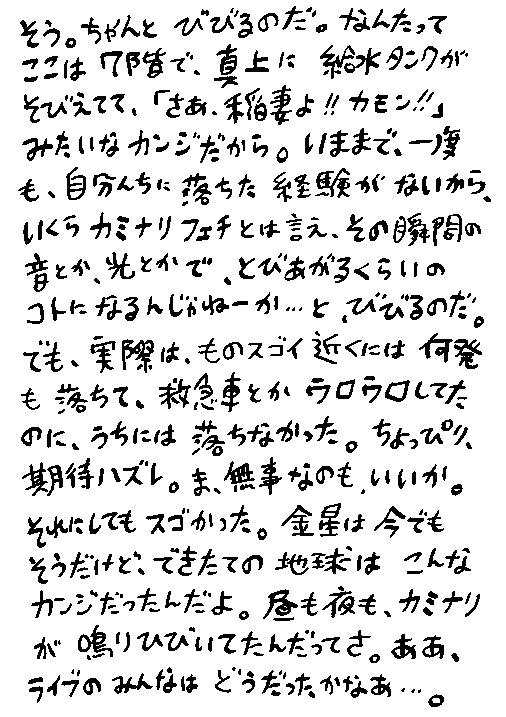 そう。ちゃんと びびるのだ。なんたって
ここは 7階で、真上に 給水タンクが
そびえてて、「さあ、稲妻よ!! カモン!!」
みたいなカンジだから。いままで、一度
も、自分んちに 落ちた 経験が ないから、
いくら カミナリフェチとは言え、その瞬間の
音とか、光とかで、とびあがるくらいの
コトになるんじゃねーか…と、びびるのだ。
でも、実際は、ものスゴイ近くには 何発
も 落ちて、救急車とか ウロウロしてた
のに、うちには 落ちなかった。ちょっぴり、
期待ハズレ。ま、無事なのも、いいか。
それにしても スゴかった。金星は 今でも
そうだけど、できたての 地球は こんな
カンジだったんだよ。昼も夜も、カミナリ
が 鳴りひびいてたんだってさ。ああ、
ライブの みんなは どうだったかなあ…。